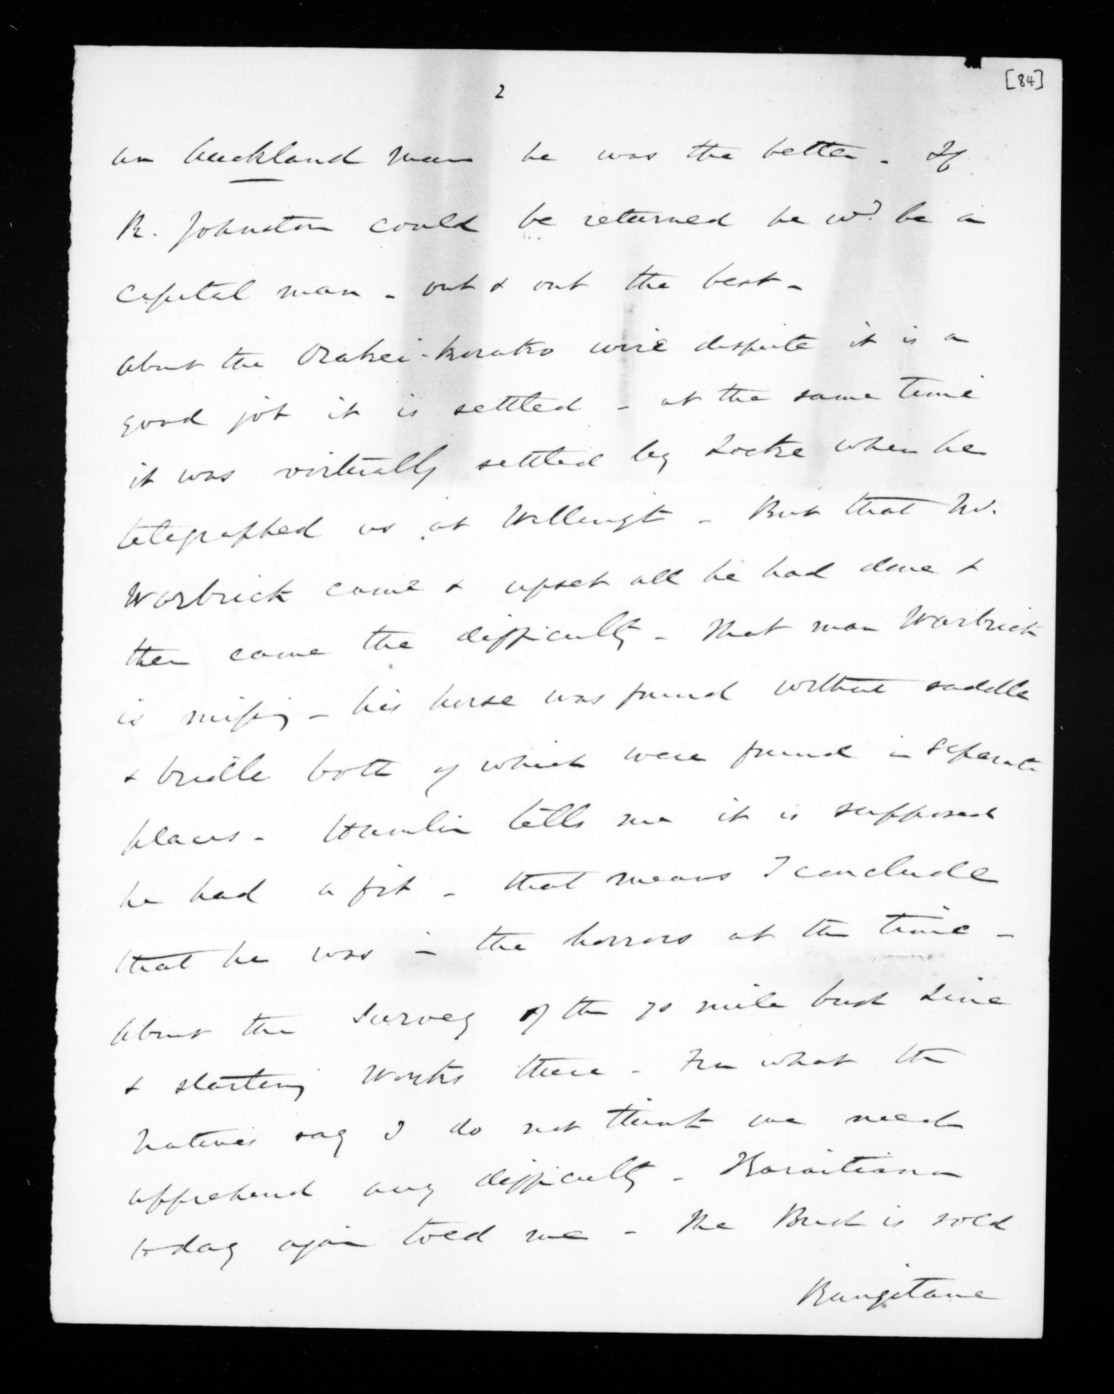 [84]
2
an Auckland man he was the better - If
R. Johnston could be returned he wd. be a
capital man - out & out the best -
About the Orakei-Korako wire dispute it is a
good job it is settled - at the same time
it was virtually settled by Locke when he
telegraphed us at Wellingt - But that Mr.
Warbrick came & upset all he had done &
then came the difficulty - That man Warbrick
is missing - his horse was found without saddle
& bridle both of which were found in separate
places - Hamlin tells me it is supposed
he had a fit - that means I conclude
that he was in the horrors at the time -
About the Survey of the 70 mile bush Line
& starting works there - From what the
Natives say I do not think we need
apprehend any difficulty - Karaitiana
today again told me - The Bush is sold
Rangitane